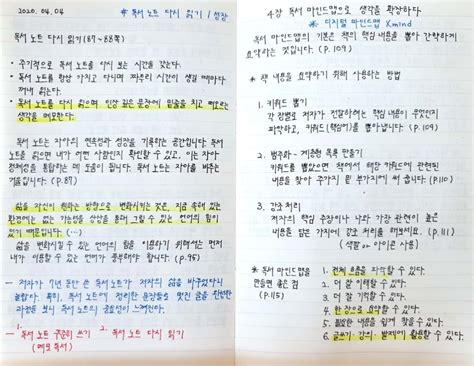 2020. 04. 04
* 독서 노트 다시 읽기 / 성장
독서 노트 다시 읽기 (87~88쪽)
• 주기적으로 독서 노트를 다시 보는 시간을 갖는다.
• 독서 노트를 항상 가지고 다니며 짜투리 시간이 생길 때마다
꺼내 읽는다.
• 독서 노트를 다시 읽으며, 인상 깊은 문장에 밑줄을 치고 떠오르는
생각을 메모한다.
독서 노트는 자아의 연속성과 성장을 기록하는 공간입니다. 독서
노트를 읽으면 내가 어떤 사람인지 확인할 수 있고, 이는 자아
정체성을 통합하는 데도 도움이 됩니다. 독서 노트는 나를 바꾸는
거울입니다 (P.87)
삶을 자신이 원하는 방향으로 변화시키는 것은, 지금 속해 있는
환경에는 없는 가능성을 상상을 통해 그릴 수 있는 언어의 힘이
있기 때문입니다. (…)
삶을 변화시킬 수 있는 언어의 힘을 이용하기 위해서는 먼저
내가 이용할 수 있는 언어가 풍부해야 합니다. (p.95)
- 저자가 7년 동안 쓴 독서 노트가 저자의 삶을 바꾸었다니
놀랍다. 특히, 독서 노트에 정리한 문장들로 맺은 글을 완성한
과정을 보니 독서 노트의 효용성이 느껴진다.
- 1. 독서 노트 꾸준히 쓰기 2. 독서 노트 다시 읽기
(메모 독서)
4장 독서 마인드맵으로 생각을 확장하다.
* 디지털 마인드맵 Xmind
독서 마인드맵의 기본은 책의 핵심 내용을 뽑아 간략하게
요약하는 것입니다. (P.109)
* 책 내용을 요약하기 위해 사용하는 방법
1. 키워드 뽑기
각 장별로 저자가 전달하려는 핵심 내용이 무엇인지
파악하고, 키워드(핵심어)를 뽑아냅니다. (P.109)
2. 범주화 - 계층형 목록 만들기
키워드를 뽑았다면 책에서 해당 키워드에 관련된
내용을 찾아 주가지 밑 부가지에 써 줍니다. (P.110)
3. 강조 처리
저자의 핵심 주장이나 나와 가장 관련이 높은
내용을 담은 가지에 강조 처리를 해보세요. (P.111)
(색깔 or 아이콘 사용)
* 독서 마인드맵을 만들면 좋은 점 (P.115)
1. 전체 흐름을 파악할 수 있다.
2. 더 잘 이해할 수 있다.
3. 더 잘 기억할 수 있다.
4. 한 장으로 요약할 수 있다.
5. 필요한 내용을 쉽게 찾을 수 있다.
6. 글쓰기 · 강의 · 발제에 활용할 수 있다.